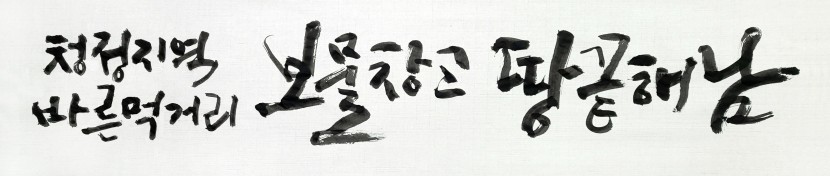 청정지역
바른먹거리
보물창고 땅끝해남